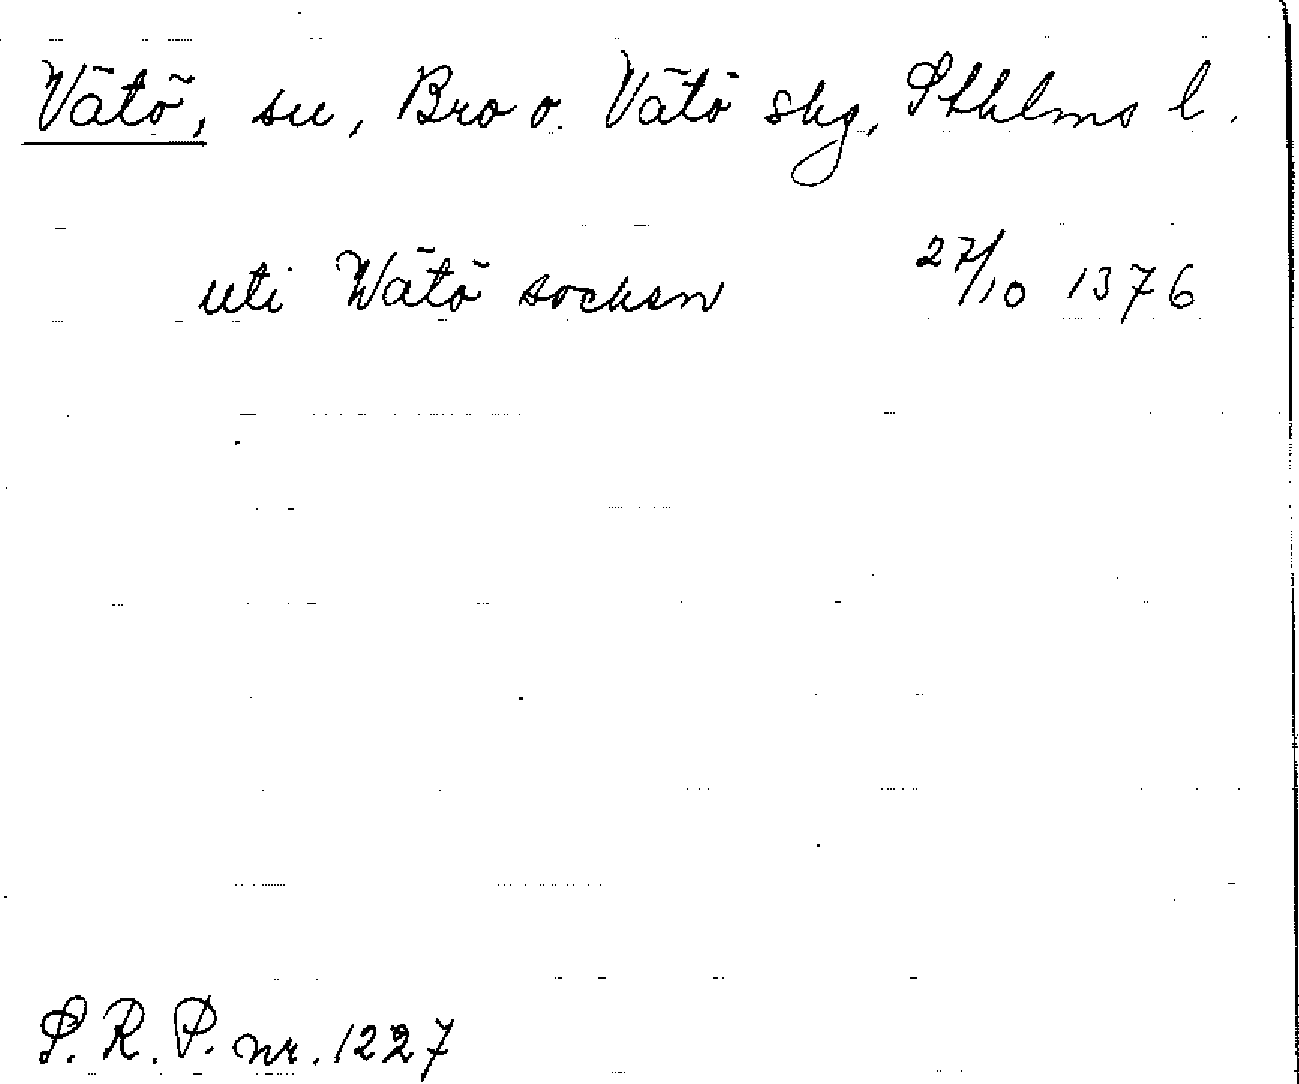 Vätö, sn, Bro o. Vätö skg, Sthlms l.
uti Wätö socken 27/10 1376
S. R. P. nr. 1227